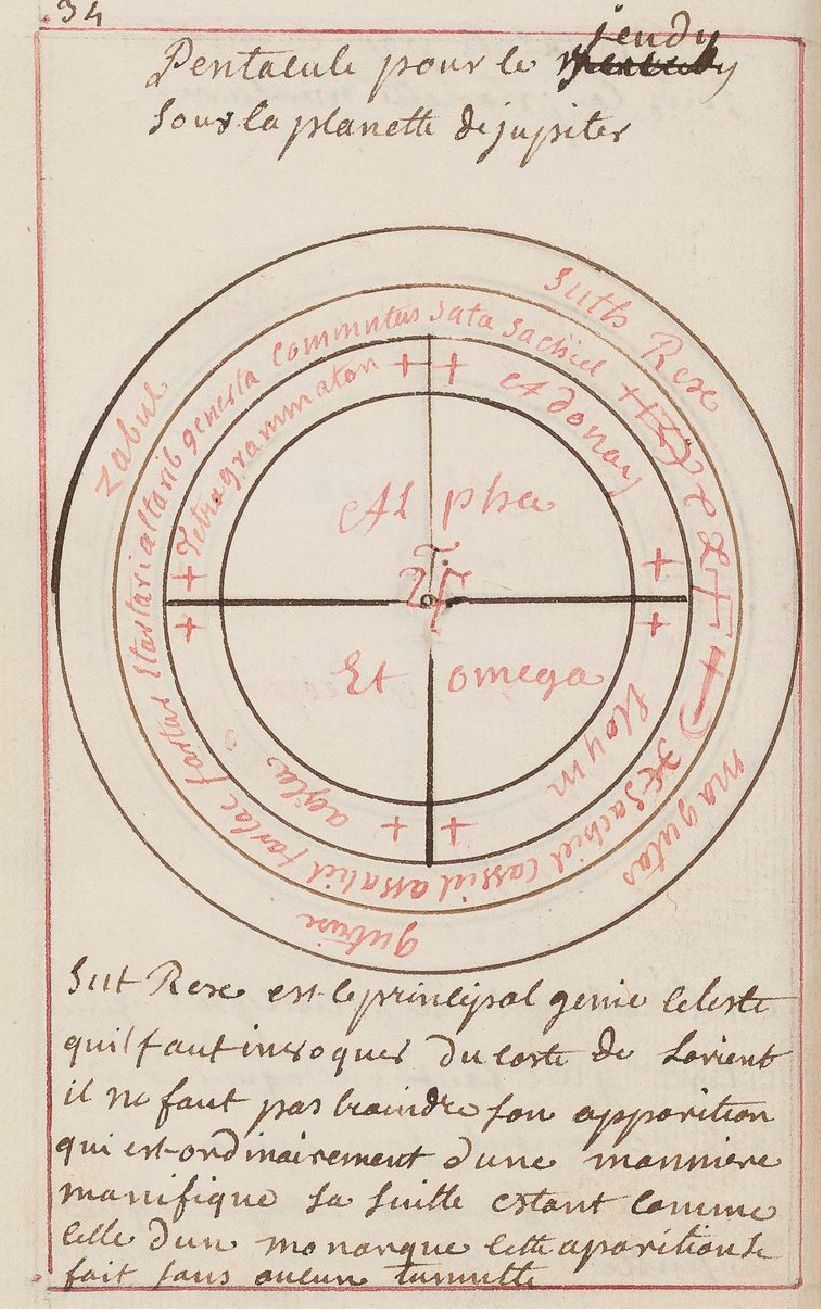 34
Pentacule pour le jeudy
sous la planette de jupiter
Suth Rex
magutas
gutrix
zabul
commutus sata sachiel
sachiel cassiel assaliel
altarib genesta
Tetragrammaton + + Adonay
+ +
+ +
Eloym + + agla
Al pha
Et omega
Sut Rex est le principal genie celeste
quil faut invoquer du coste de Lorient
il ne faut pas craindre son apparition
qui est ordinairement dune manniere
manifique sa suitte estant comme
celle dun monarque cette aparition se
fait sans aucun tumulte